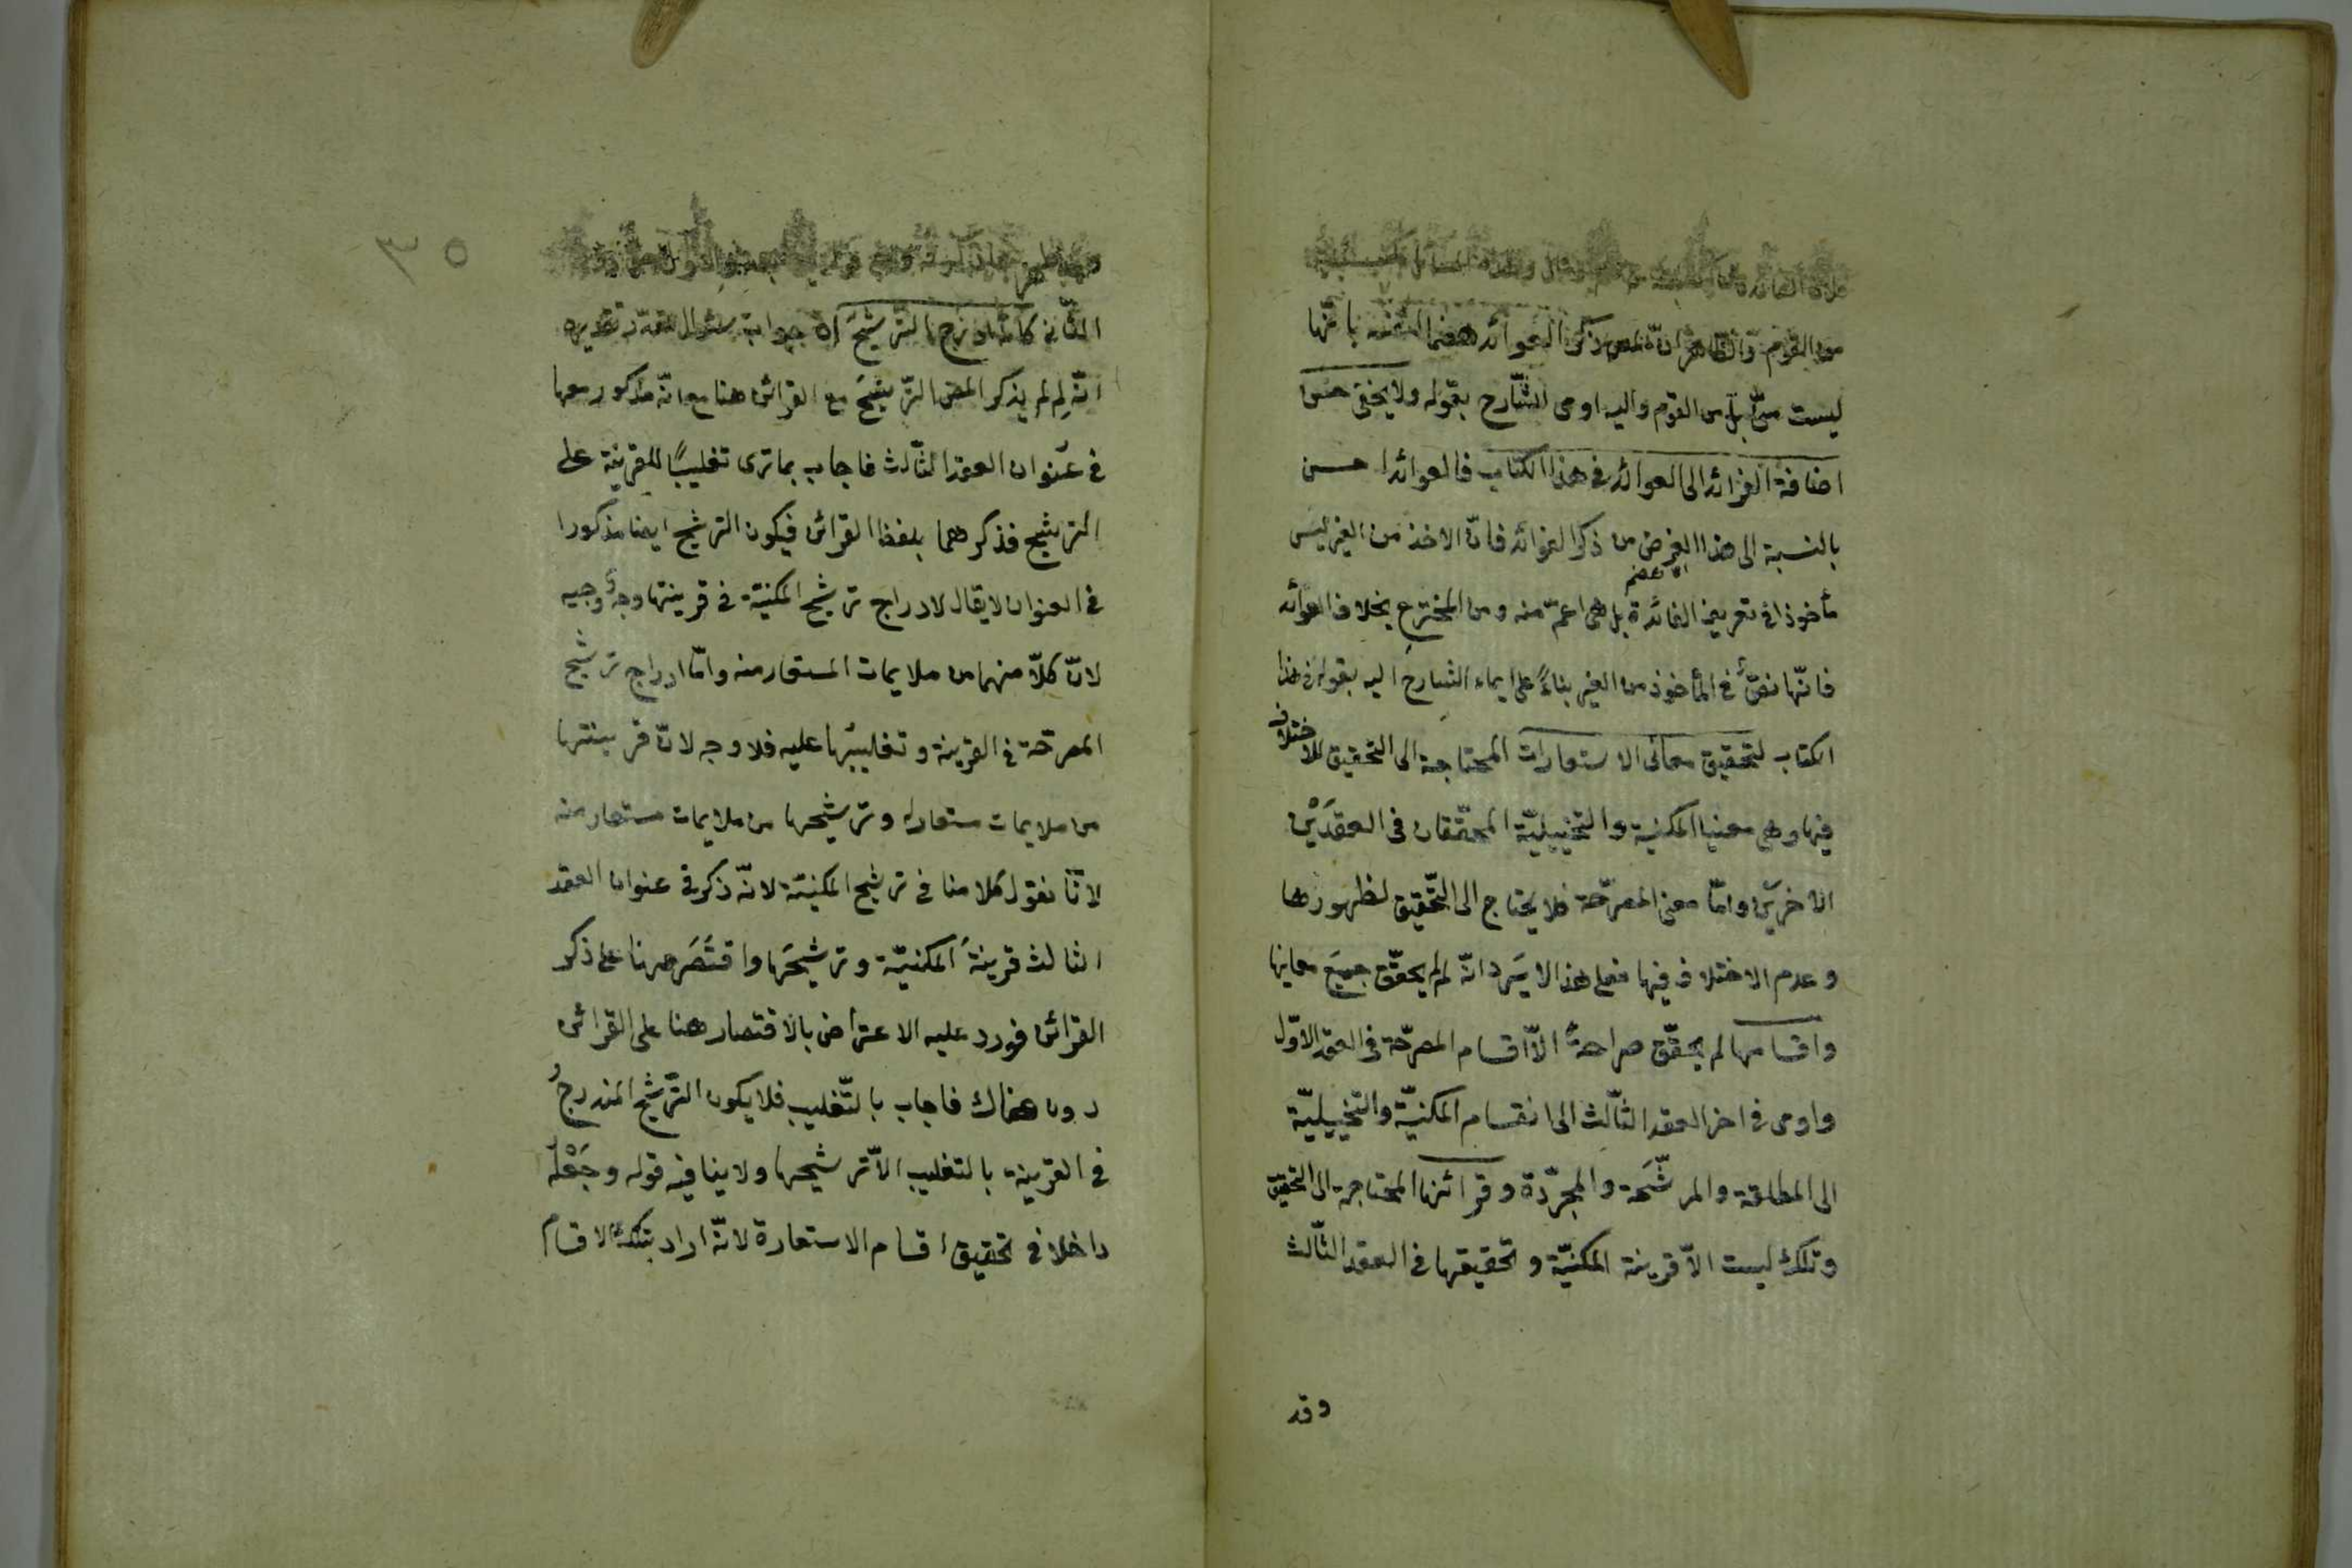 من القوم والظاهر ان المص ذكر العوائد هضما لنفسه بانّها
ليست منّى بل من القوم واليه اومى الشّارح بقوله ولا يخفى حسن
اضافة الفرائد الى العوائد فى هذا الكتاب فالعوائد احسن
بالنسبة الى هذا الغرض من ذكر الفوائد فانّ الاخذ من الغير ليس
مأخوذا فى تعريف الفائدة بل هى اعمّ منه ومن المخترع بخلاف العوائد
فانّها نصّ فى المأخوذ من الغير بناءً على ايماء الشارح اليه بقوله فى هذا
الكتاب لتحقيق معانى الاستعارات المحتاجة الى التحقيق للاختلاف
فيها وهى معنيا المكنية والتخييليّة المحقّقان فى العقدَيْن
الاخرين وامّا معنى المصرّحة فلا يحتاج الى التّحقيق لظهورها
وعدم الاختلاف فيها فعلى هذا لا يَرِد انّه لم يحقّق جميعَ معانيها
واقسامها لم يحقّق صراحةً الّا اقسام المصرّحة فى العقد الاوّل
واومى فى اخر العقد الثّالث الى انقسام المكنيّة والتخييليّة
الى المطلقة والمرشّحة والمجرّدة وقرائنها المحتاجة الى التحقيق
وتلك ليست الّا قرينة المكنيّة وتحقيقها فى العقد الثّالث
وقد
٣٥
الثّانى كانّه ادرج الترشيحَ اه جواب سئوال مقدّر تقديره
انّه لِم لم يذكر المص الترشيحَ مع القرائن هنا مع انّه مذكور معها
فى عنوان العقد الثّالث فاجاب بما ترى تغليبًا للقرينة على
الترشيح فذكرهما بلفظ القرائن فيكون الترشيح ايضا مذكورا
فى العنوان لا يقال لادراج ترشيح المكنيّة فى قرينتها وجهٌ وجيه
لانّ كلّا منهما من ملايمات المستعار منه وامّا ادراج ترشيح
المصرّحة فى القرينة وتغليبُها عليه فلا وجه لانّ قرينتها
من ملايمات مستعار له وترشيحها من ملايمات مستعار منه
لانّا نقول كلامنا فى ترشيح المكنيّة لانّه ذكر فى عنوان العقد
الثالث قرينةَ المكنيّة وترشيحَها واقتَصَر هنا على ذكر
القرائن فورد عليه الاعتراض بالاقتصار هنا على القرائن
دون هناك فاجاب بالتّغليب فلا يكون التّرشيح المندرجُ
فى القرينة بالتغليب الّا ترشيحها ولا ينافيه قوله وجَعْلُه
داخلا فى تحقيق اقسام الاستعارة لانّه اراد بتلك الاقسام